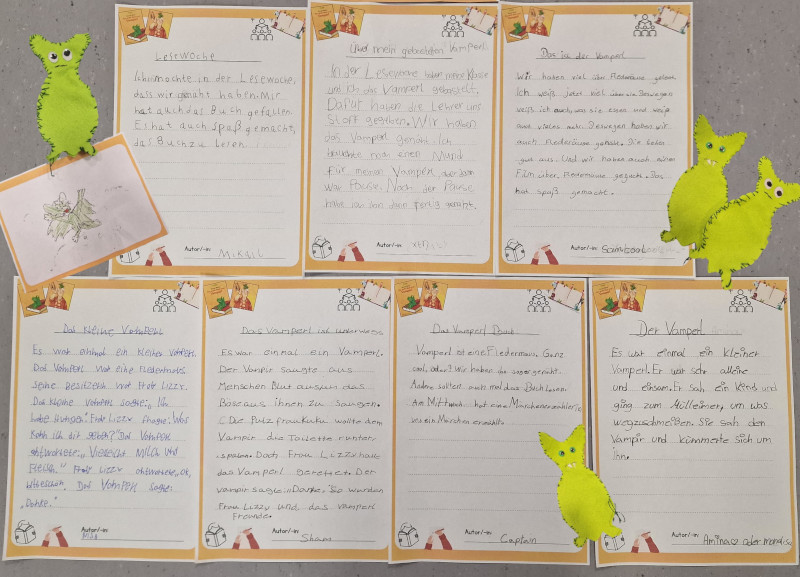 Lesewoche
Ich mochte in der Lesewoche,
dass wir genäht haben. Mir
hat auch das Buch gefallen.
Es hat auch Spaß gemacht,
das Buch zu lesen
Autor/-in: MIKAIL
Und mein gebasteltes Vamperl
In der Lesewoche haben meine Klase
und ich das Vamperl gebastelt.
Dafür haben die Lehrer uns
Stoff gegeben. Wir haben
das Vamperl genäht. Ich
brauchte noch einen Mund
für meinen Vamperl, aber dann
war Pause. Nach der Pause
habe ich ihn dann fertig genäht.
Autor/-in:
Das ist der Vamperl
Wir haben viel über Fledermäuse gelernt.
Ich weiß jetzt viel über sie. Deswegen
weiß ich auch, was sie essen und weiß
auch vieles mehr. Deswegen haben wir
auch Fledermäuse genäht. Die sehen
gut aus. Und wir haben auch einen
Film über Fledermäuse geguckt. Das
hat spaß gemacht.
Autor/-in:
Das kleine Vamperl
Es war einmal ein kleiner Vamperl.
Das Vamperl war eine Fledermaus.
Seine Besitzerin war Frau Lizzy.
Das kleine Vamperl sagte: „Ich
habe Hunger." Frau Lizzy fragte: „Was
kann ich dir geben?" Das Vamperl
antwortete: „Vielleicht Milch und
Fleisch." Frau Lizzy antwortete: „Ok,
bitteschön." Das Vamperl sagte:
„Danke."
Autor/-in:
Das Vamperl ist unterwegs
Es war einmal ein Vamperl.
Der Vampir saugte aus
Menschen Blut aus um das
Böse aus ihnen zu saugen.
Die Putzfrau Kuku wollte dem
Vampir die Toilette runter-
spülen. Doch Frau Lizzy hat
das Vamperl gerettet. Der
vampir sagte: „Danke." So wurden
Frau Lizzy und das Vamperl
Freunde.
Autor/-in: Sham
Das Vamperl Braut
Vamperl ist eine Fledermaus. Ganz
cool, oder? Wir haben ihn sogar genäht.
Andere sollten auch mal das Buch lesen.
Am Mittwoch hat eine Märchenerzählerin
uns ein Märchen erzählt.
Autor/-in: Captain
Der Vamperl
Es war einmal ein kleiner
Vamperl. Er war sehr alleine
und einsam. Er sah ein Kind, und
ging zum Mülleimer, um was
wegzuschmeißen. Sie sah den
Vampir und kümmerte sich um
ihn.
Autor/-in: